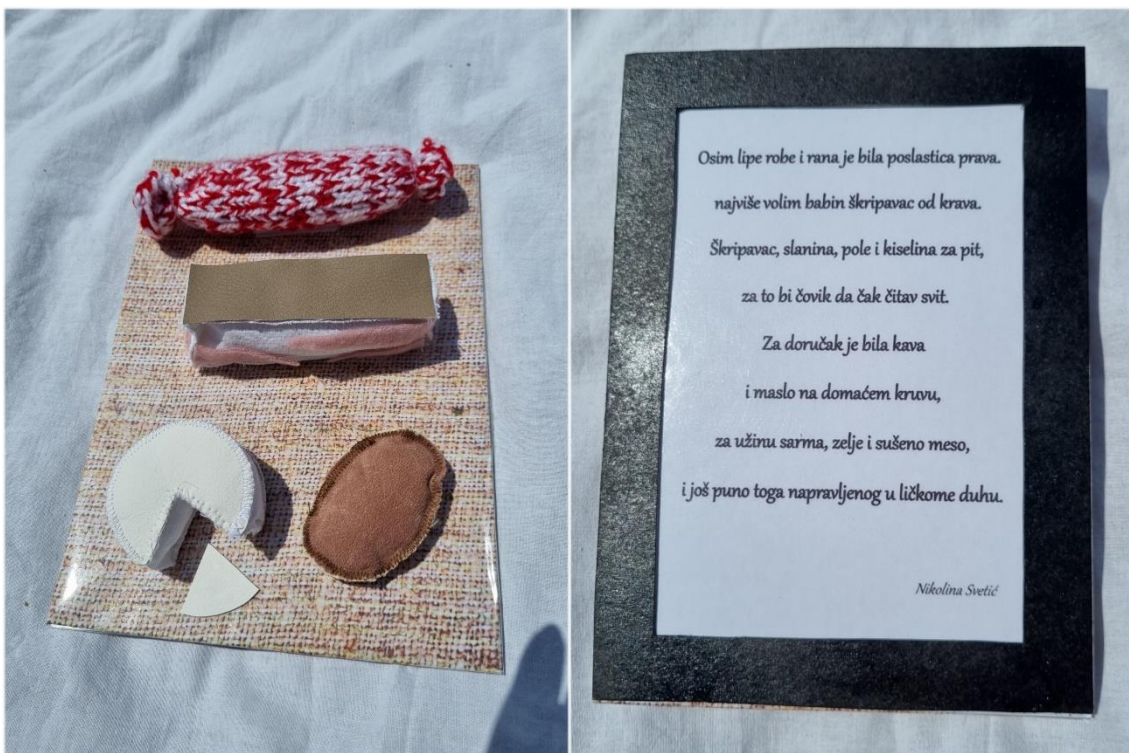 Osim lipe robe i rana je bila poslastica prava.
najviše volim babin škripavac od krava.
Škripavac, slanina, pole i kiselina za pit,
za to bi čovik da čak čitav svit.
Za doručak je bila kava
i maslo na domaćem kruvu,
za užinu sarma, zelje i sušeno meso,
i još puno toga napravljenog u ličkome duhu.
Nikolina Svetić